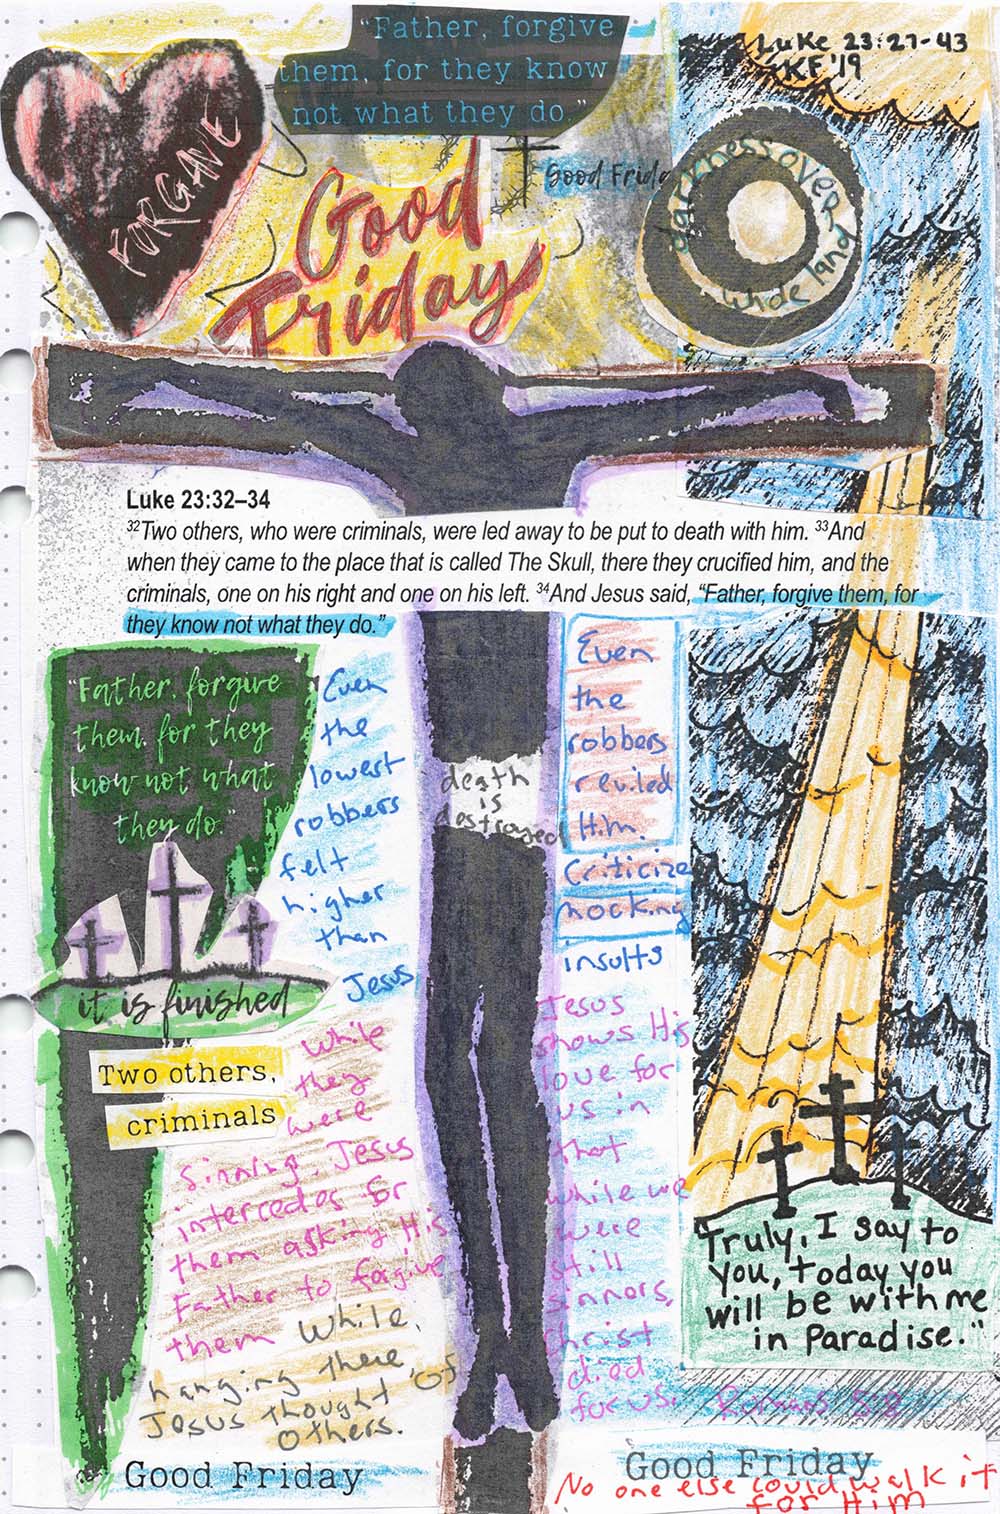 "Father, forgive
them, for they know
not what they do."
Luke 23:27-43
KF '19
FORGAVE
Good
Friday
Good Frida
darkness over
whole land
Luke 23:32–34
32Two others, who were criminals, were led away to be put to death with him. 33And
when they came to the place that is called The Skull, there they crucified him, and the
criminals, one on his right and one on his left. 34And Jesus said, "Father, forgive them, for
they know not what they do."
"Father, forgive
them, for they
know not what
they do."
it is finished
Two others,
criminals
Even
the
lowest
robbers
felt
higher
than
Jesus
while
they
were
sinning, Jesus
intercedes for
them asking His
Father to forgive
them while,
hanging there,
Jesus thought of
others.
death
is
destroyed
Even
the
robbers
reviled
Him.
Criticize
mocking
insults
Jesus
shows His
love for
us in
that
while we
were
still
sinners,
Christ
died
for us. Romans 5:8
Truly, I say to
you, today you
will be with me
in Paradise."
Good Friday
Good Friday
No one else could walk it
for Him